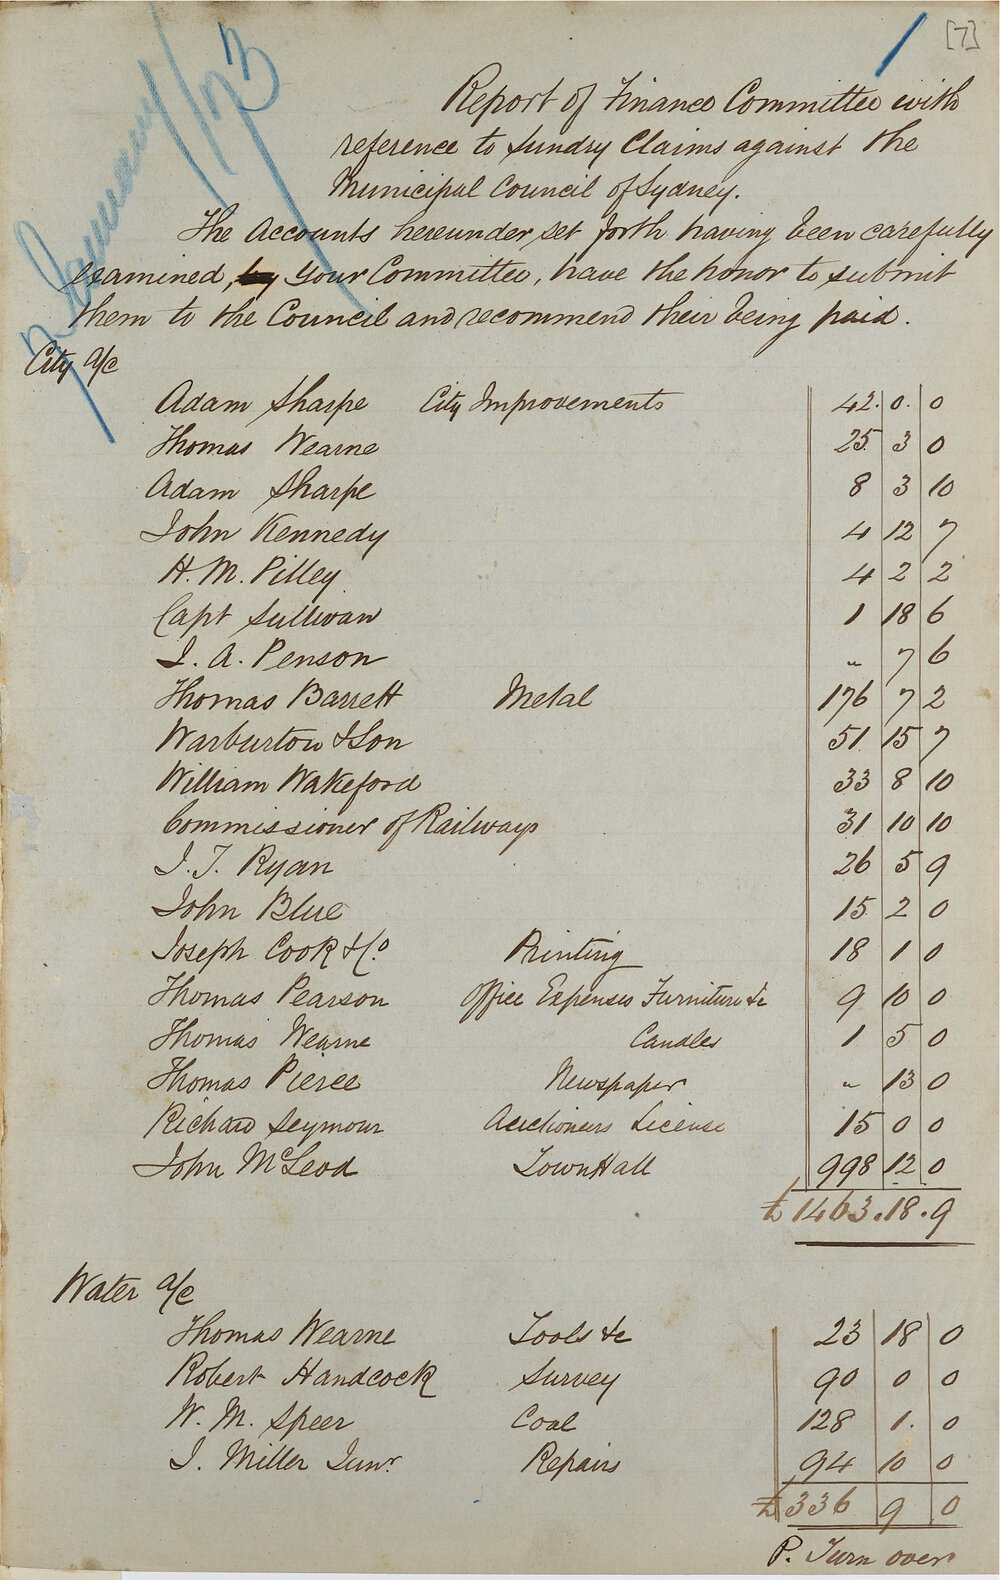 [7]
Report of Finance Committee with
reference to Sundry Claims against the
Municipal Council of Sydney.
The Accounts hereunder set forth having been carefully
examined, by your Committee, have the honor to submit
them to the Council and recommend their being paid.
City a/c
Adam Sharpe City Improvements 42. 0. 0
Thomas Wearne 25 3 0
Adam Sharpe 8 3 10
John Kennedy 4 12 7
H. M. Pilley 4 2 2
Capt Sullivan 1 18 6
J. A. Penson " 7 6
Thomas Barrett Metal 176 7 2
Warburton & Son 51 15 7
William Wakeford 33 8 10
Commissioner of Railways 31 10 10
J. T. Ryan 26 5 9
John Blue 15 2 0
Joseph Cook & Co. Printing 18 1 0
Thomas Pearson Office Expenses Furniture &c 9 10 0
Thomas Wearne Candles 1 5 0
Thomas Pierce Newspaper " 13 0
Richard Seymour Auctioneers License 15 0 0
John McLeod Town Hall 998 12 0
£1463.18.9
Water a/c
Thomas Wearne Tools &c 23 18 0
Robert Handcock Survey 90 0 0
W. M. Speer Coal 128 1. 0
J. Miller Junr. Repairs 94 10 0
£336 9 0
P. Turn over